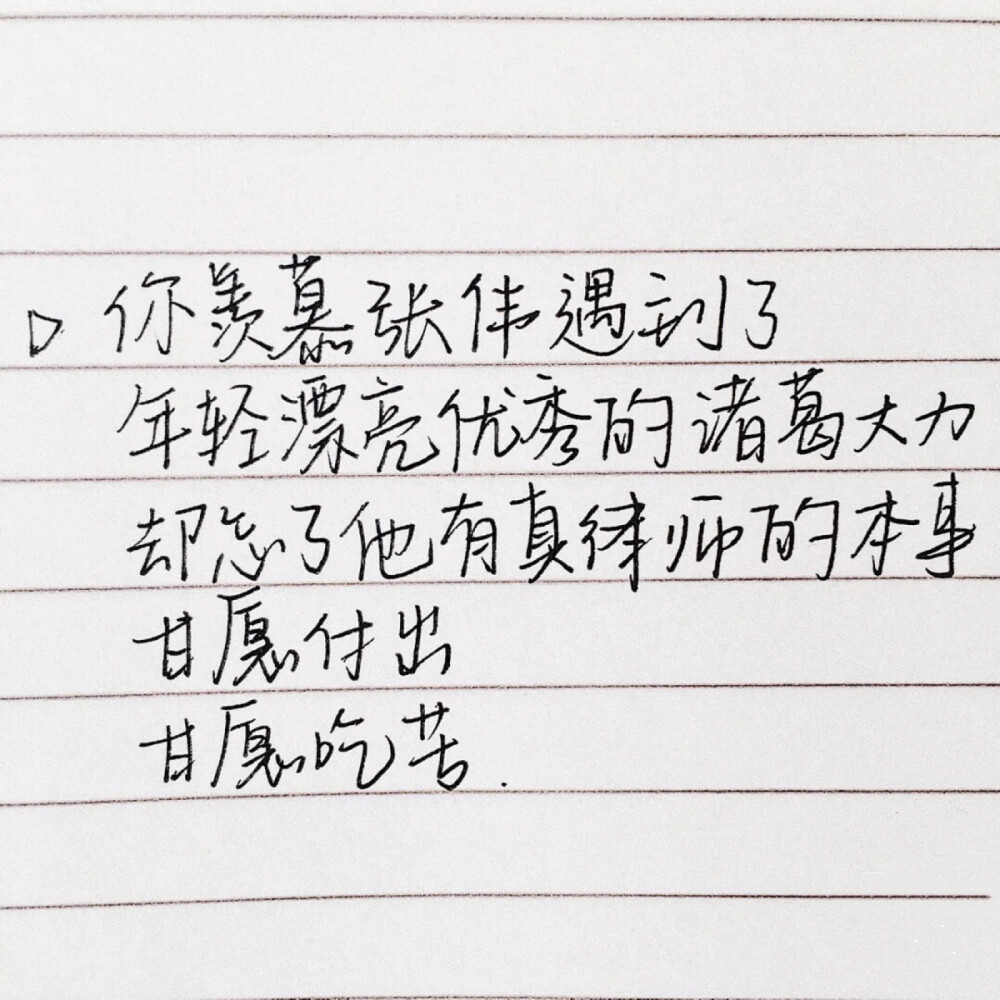 ▷ 你羡慕张伟遇到了
年轻漂亮优秀的诸葛大力
却忘了他有真律师的本事
甘愿付出
甘愿吃苦.